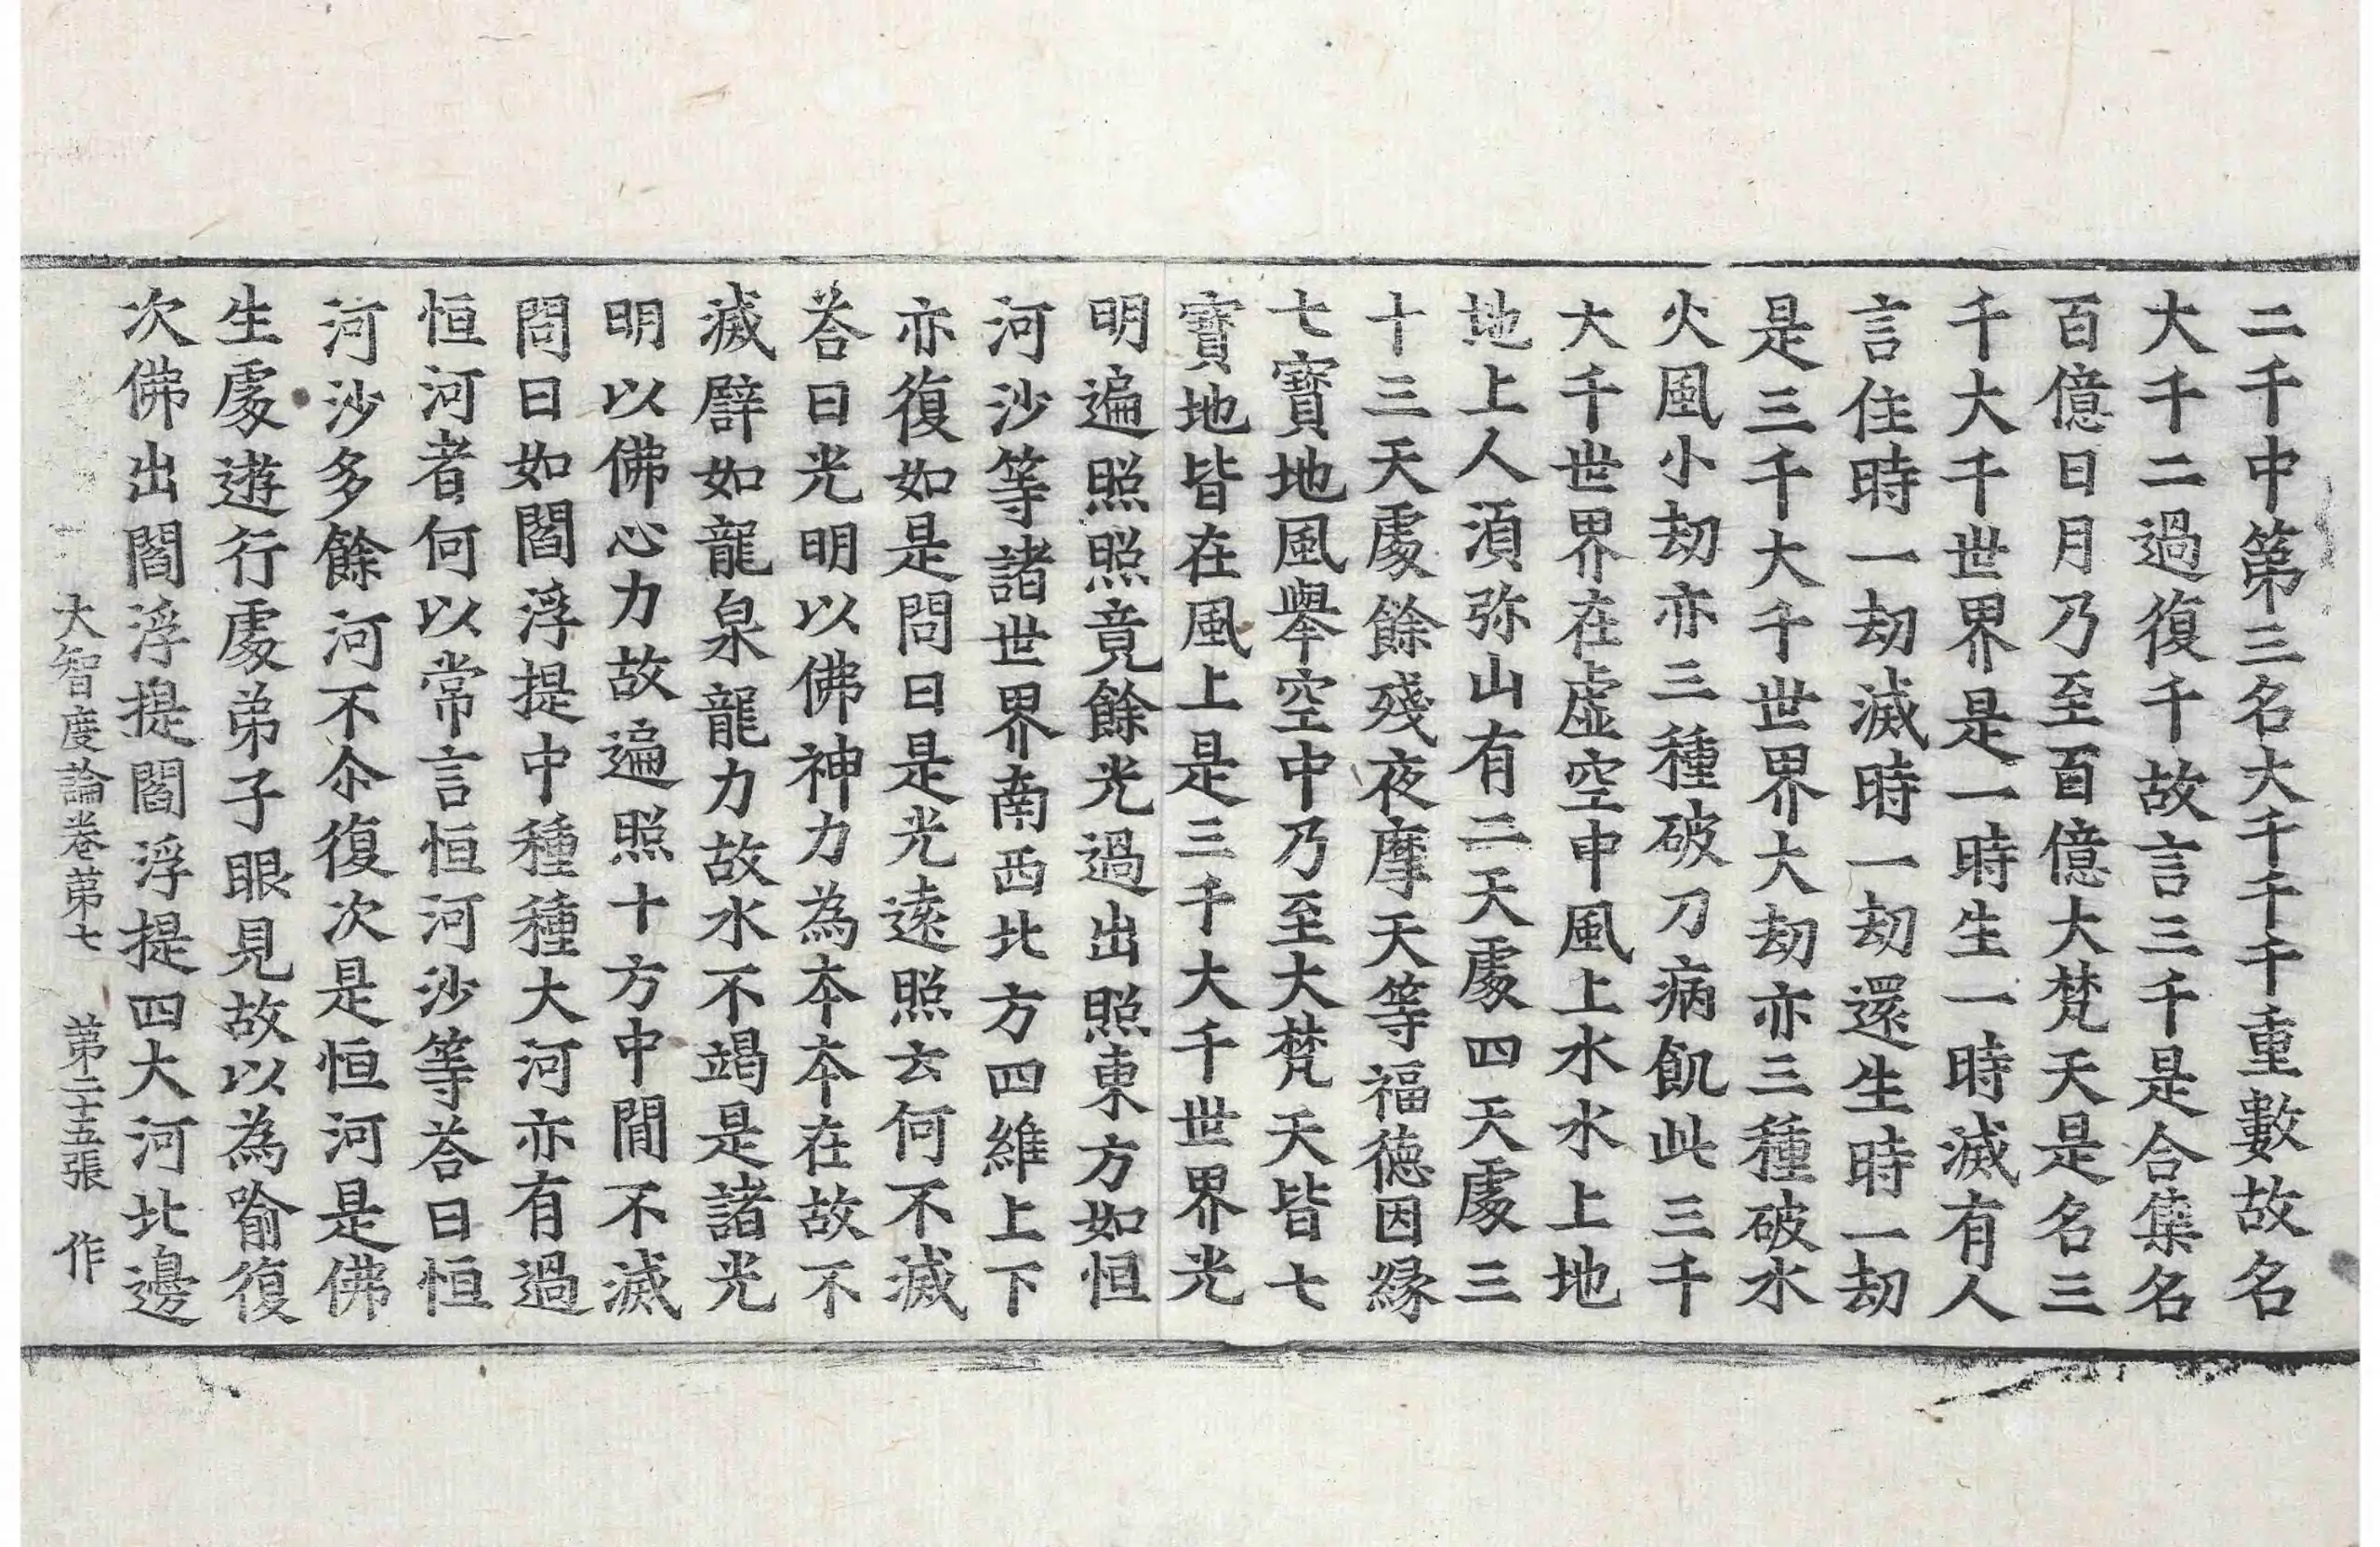 二千中第三名大千千千重數故名
大千二過復千故言三千是合集名
百億日月乃至百億大梵天是名三
千大千世界是一時生一時滅有人
言住時一劫滅時一劫還生時一劫
是三千大千世界大劫亦三種破水
火風小劫亦三種破刀病飢此三千
大千世界在虛空中風上水水上地
地上人湏弥山有二天處四天處三
十三天處餘殘夜摩天等福德因緣
七寶地風舉空中乃至大梵天皆七
寶地皆在風上是三千大千世界光
明遍照照竟餘光過出照東方如恒
河沙等諸世界南西北方四維上下
亦復如是問曰是光遠照云何不滅
荅曰光明以佛神力為夲夲在故不
滅譬如龍泉龍力故水不竭是諸光
明以佛心力故遍照十方中閒不滅
問曰如閻浮提中種種大河亦有過
恒河者何以常言恒河沙等荅曰恒
河沙多餘河不尒復次是恒河是佛
生處遊行處弟子眼見故以為喻復
次佛出閻浮提閻浮提四大河北邊
大智度論卷第七 第二十五張 作